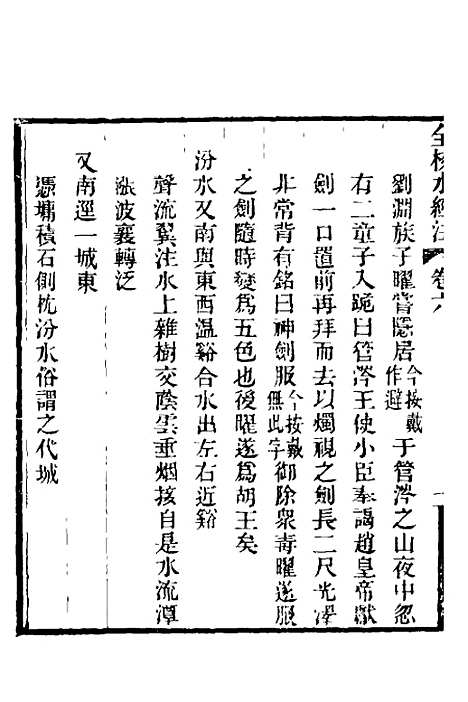 全校水經注 卷六
劉淵族子曜嘗隱居今按戴作避于管涔之山夜中忽
有二童子入跪曰管涔王使小臣奉謁趙皇帝獻
劍一口置前再拜而去以燭視之劍長二尺光澤
非常背有銘曰神劍服今按戴無此字御除衆毒曜遂服
之劍隨時變爲五色也後曜遂爲胡王矣
汾水又南與東西溫谿合水出左右近谿
聲流翼注水上雜樹交蔭雲垂烟接自是水流潭
漲波襄轉泛
又南逕一城東
憑墉積石側枕汾水俗謂之代城